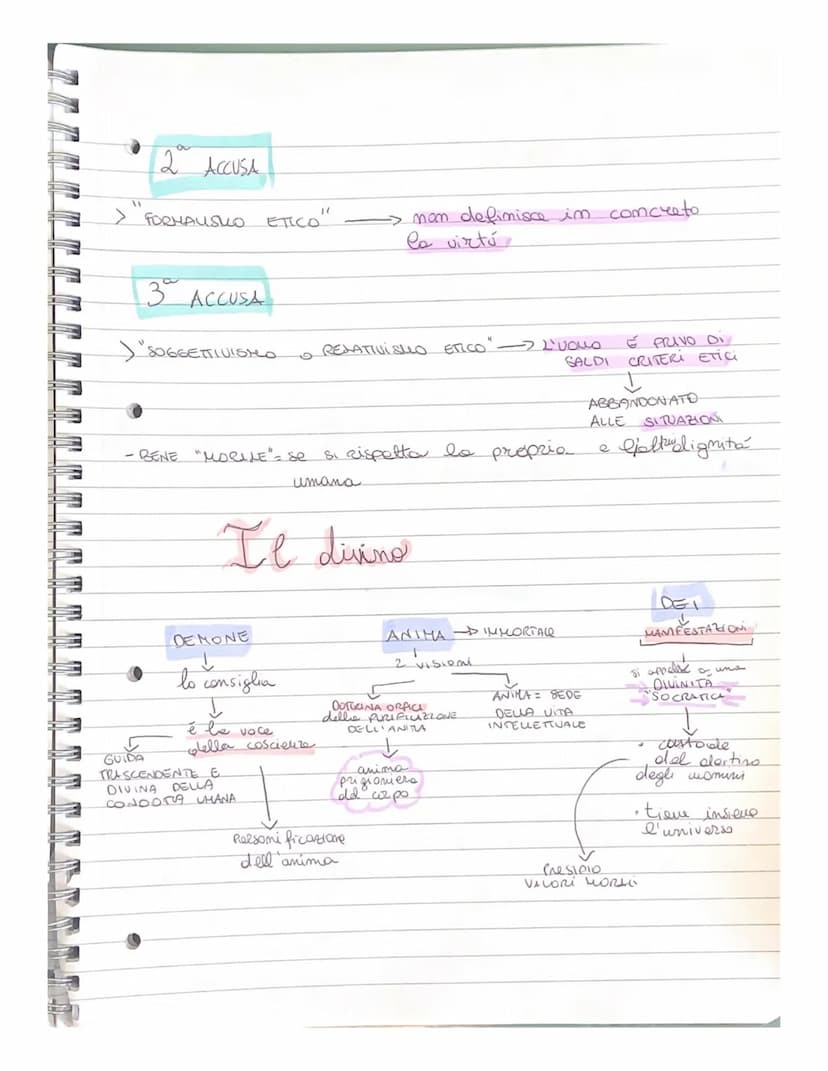 2ª ACCUSA
> "FORMALISMO ETICO" → non definisce in concreto
la virtú
3ª ACCUSA
> "SOGGETTIVISMO o RELATIVISMO ETICO" → L'UOMO É PRIVO DI
SALDI CRITERI ETICI
↓
ABBANDONATO
ALLE SITUAZIONI
- BENE "MORALE" = se si rispetta la propria e l'altrui dignitá
umana
Il divino
DEMONE
↓
lo consiglia
↓
é la voce
della coscienza
GUIDA
TRASCENDENTE E
DIVINA DELLA
CONDOTTA UMANA
Personificazione
dell'anima
ANIMA → IMMORTALE
↓
2 visioni
DOTTRINA ORFICA
della PURIFICAZIONE
DELL'ANIMA
↓
anima
prigioniera
del corpo
ANIMA = SEDE
DELLA VITA
INTELLETTUALE
DEI
↓
MANIFESTAZIONI
si a una
→ DIVINITÀ
→ "SOCRATICA"
↓
• custode
del destino
degli uomini
• tiene insieme
l'universo
PRESIDIO
VALORI MORALI